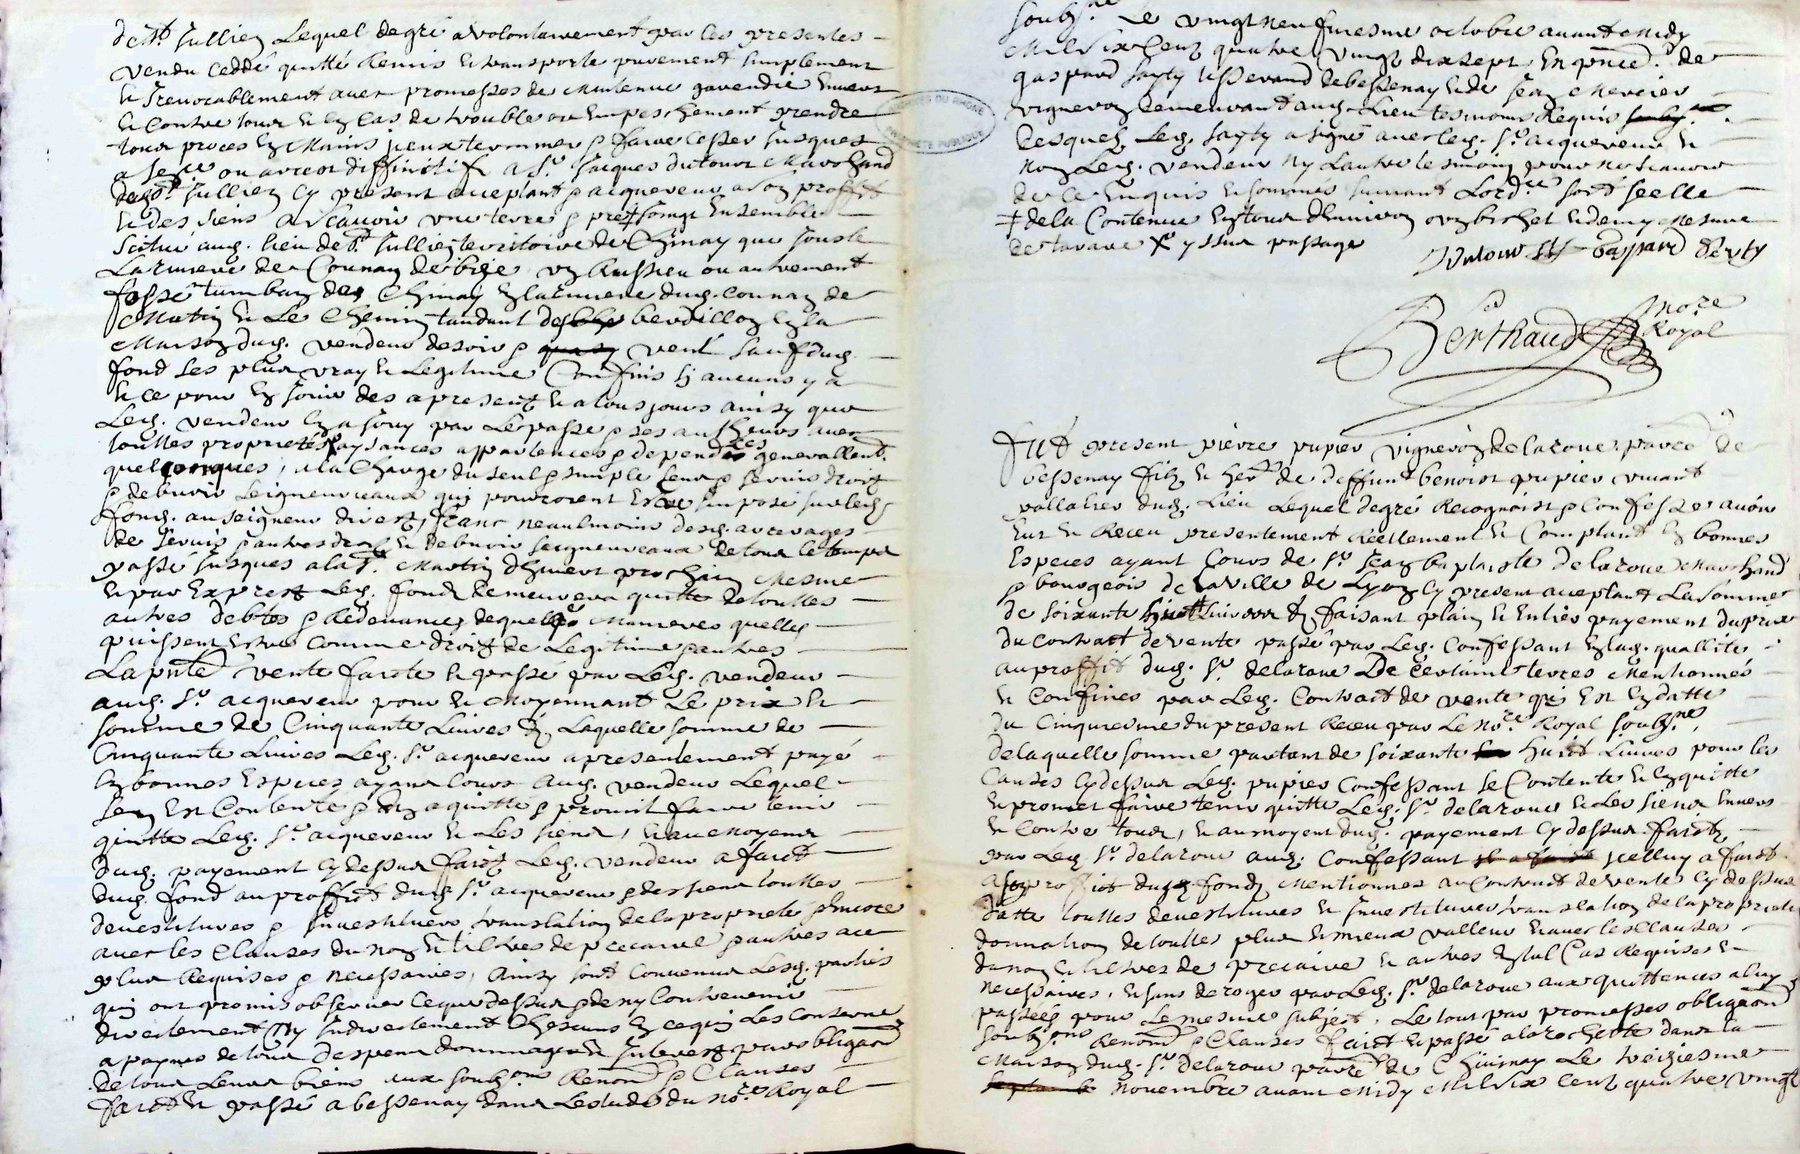 de St Jullien Lequel de gré a volontairement par ces presentes
vendu ceddé quitté Remis et transporté purement simplement
et Irrevocablement avec promesses de Maintenir garendie Envers
et Contre tous et En Cas de trouble ou Empeschement prendre
tous proces En Mains Iceux terminer et faire Cesser Jusques
a sence ou arrest diffinitif A Sr Jacques dutour Marchand
de St Jullien Cy present acceptant et acquereur a son proffit
et des siens Ascavoir une terre et pré ‡ Joinct Ensemble
Scitué aud. lieu de St Jullien territoire de Chinay que Jouste
La riviere de Counan de bize un Ruisseu ou autrement
fossé tumban des Chinay En la riviere dud. Counan de
Matin et Le Chemin tandant des berdillon En la
Maison dud. vendeur de soir et vent sauf dud.
fond ses plus vray et Legitime Confins sy aucuns y a
et ce pour En Jouir des apresent et a tousjours ainsy que
Led. vendeur En a Jouy par Le passé et ses autheurs avec
touttes proprietés aysances appartences et dependces generallemt
quelconques, a la Charge du seul et simple Cens et servis droit
et debvoir seigneuriaux qui pourroient Estre Imposé sur led.
fond. au seigneur direct, franc neaulmoins desd. arreyages
de servis et autres droits et debvoir seigneuriaux de tout le temps
passé Jusques a la St Martin d'hivert prochain Mesme
et par Exprest Led. fond demeurera quitte de touttes
autres debtes et Redevances de quelles Manieres quelles
puissent Estre Comme droit de Legitime et autres
La pnte vente faicte et passé par Led. vendeur
aud. Sr acquereur pour et Moyennant Le prix et
somme de Cinquante Livres Laquelle somme de
Cinquante Livres Led. Sr acquereur a presentement payé
En bonnes Especes ayant Cours aud. vendeur Lequel
s'en Est Contenté et En a quitté et promit faire tenir
quitte Led. Sr acquereur et Les siens, et au Moyent
dud. payement Cy dessus faict Led. vendeur a faict
dud. fond au proffit dud. Sr acquereur et des siens touttes
devestitures et Investitures translation de la proprieté
avec les Clauses du nom et tiltres de precaire et autres ace
plus Requises et necessaires, Ainsy sont Convenus Lesd. parties
qui ont promis observer Ceque dessus et de ny Contrevenir
directement Ny Indirectement Chescuns En ce qui Les Concerne
a paynes de tous despens dommages et Interest par obligaon
de tous Leurs biens aux soubzons Renonon et Clauses
faict et passé a bessenay dans Lestude du Nore Royal
soubzné Le vingt neufviesme octobre avant Midy
Mil six Cent quatre vingt dix sept En pnce de
gaspard Sayty tisserand de bessenay et de Jean Mercier
vigneron demeurant aud. Lieu tesmoins Requis
Lesquels Led. Sayty a signé avec led. Sr acquereur et
non Led. vendeur Ny Lautre tesmoing pour ne scavoir
de ce Enquis et sommes suivant Lordce soit scellé
‡ de la Contenue En tout d'Environ un bichet et demy Mesure
de tarare X y sur passage
Dutour
Gaspard Seyty
Berthaud nore Royal
Fut present pierre pupier vigneron de laroue parce de
bessenay filz et herr de deffunt benoist pupier vivant
vallatier dud. Lieu Lequel degré Recognoist et Confesse avoir
Eut et Receu presentement Réellement et Comptant En bonnes
Especes ayant Cours de Sr Jean baptiste delaroue Marchand
et bourgeois de La Ville de Lyon Cy present acceptant La somme
de soixante huit Livres faisant plain et Entier payement du prix
du Contract de vente passé par Led. Confessant En lad. quallité
au proffit dud. Sr delaroue De Certaines terres Mentionnés
et Confinés par Led. Contract de vente qui Est En datte
du Cinquiesme du present Receu par Le Nore Royal soubzné,
de laquelle somme partant de soixante huict Livres pour les
Causes Cy dessus Led. pupier Confessant se Contente et En quitte
et promet faire tenir quitte Led. Sr delaroue et Les siens Envers
et Contre tous, et au moyent dud. payement Cy dessus faict
par Led. Sr delaroue aud. Confessant Icelluy a faict
a son proffict dud. fond Mentionnes au Contract de vente Cy dessus
datté touttes devestitures et Investitures translation de la proprieté
donnation de touttes plus et mieux valleur et avec les Clauses
du nom et tiltres de precaire et autres En tel Cas Requises et
necessaires, et sans deroger par Led. Sr delaroue aux quittences a luy
passées pour Le mesme subject. Le tout par promesses obligaon
soubzons Renonon et Clauses faict et passé a la rochette dans la
Maison dud. Sr delaroue parce de Chivinay Le treiziesme
novembre avant Midy Mil six cent quatre vingt